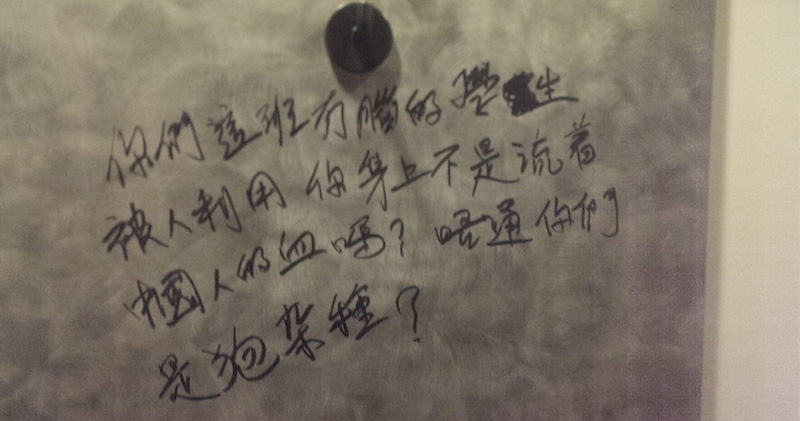 你們這班冇腦的學生
被人利用 你身上不是流着
中國人的血嗎？唔通你們
是狗杂種？